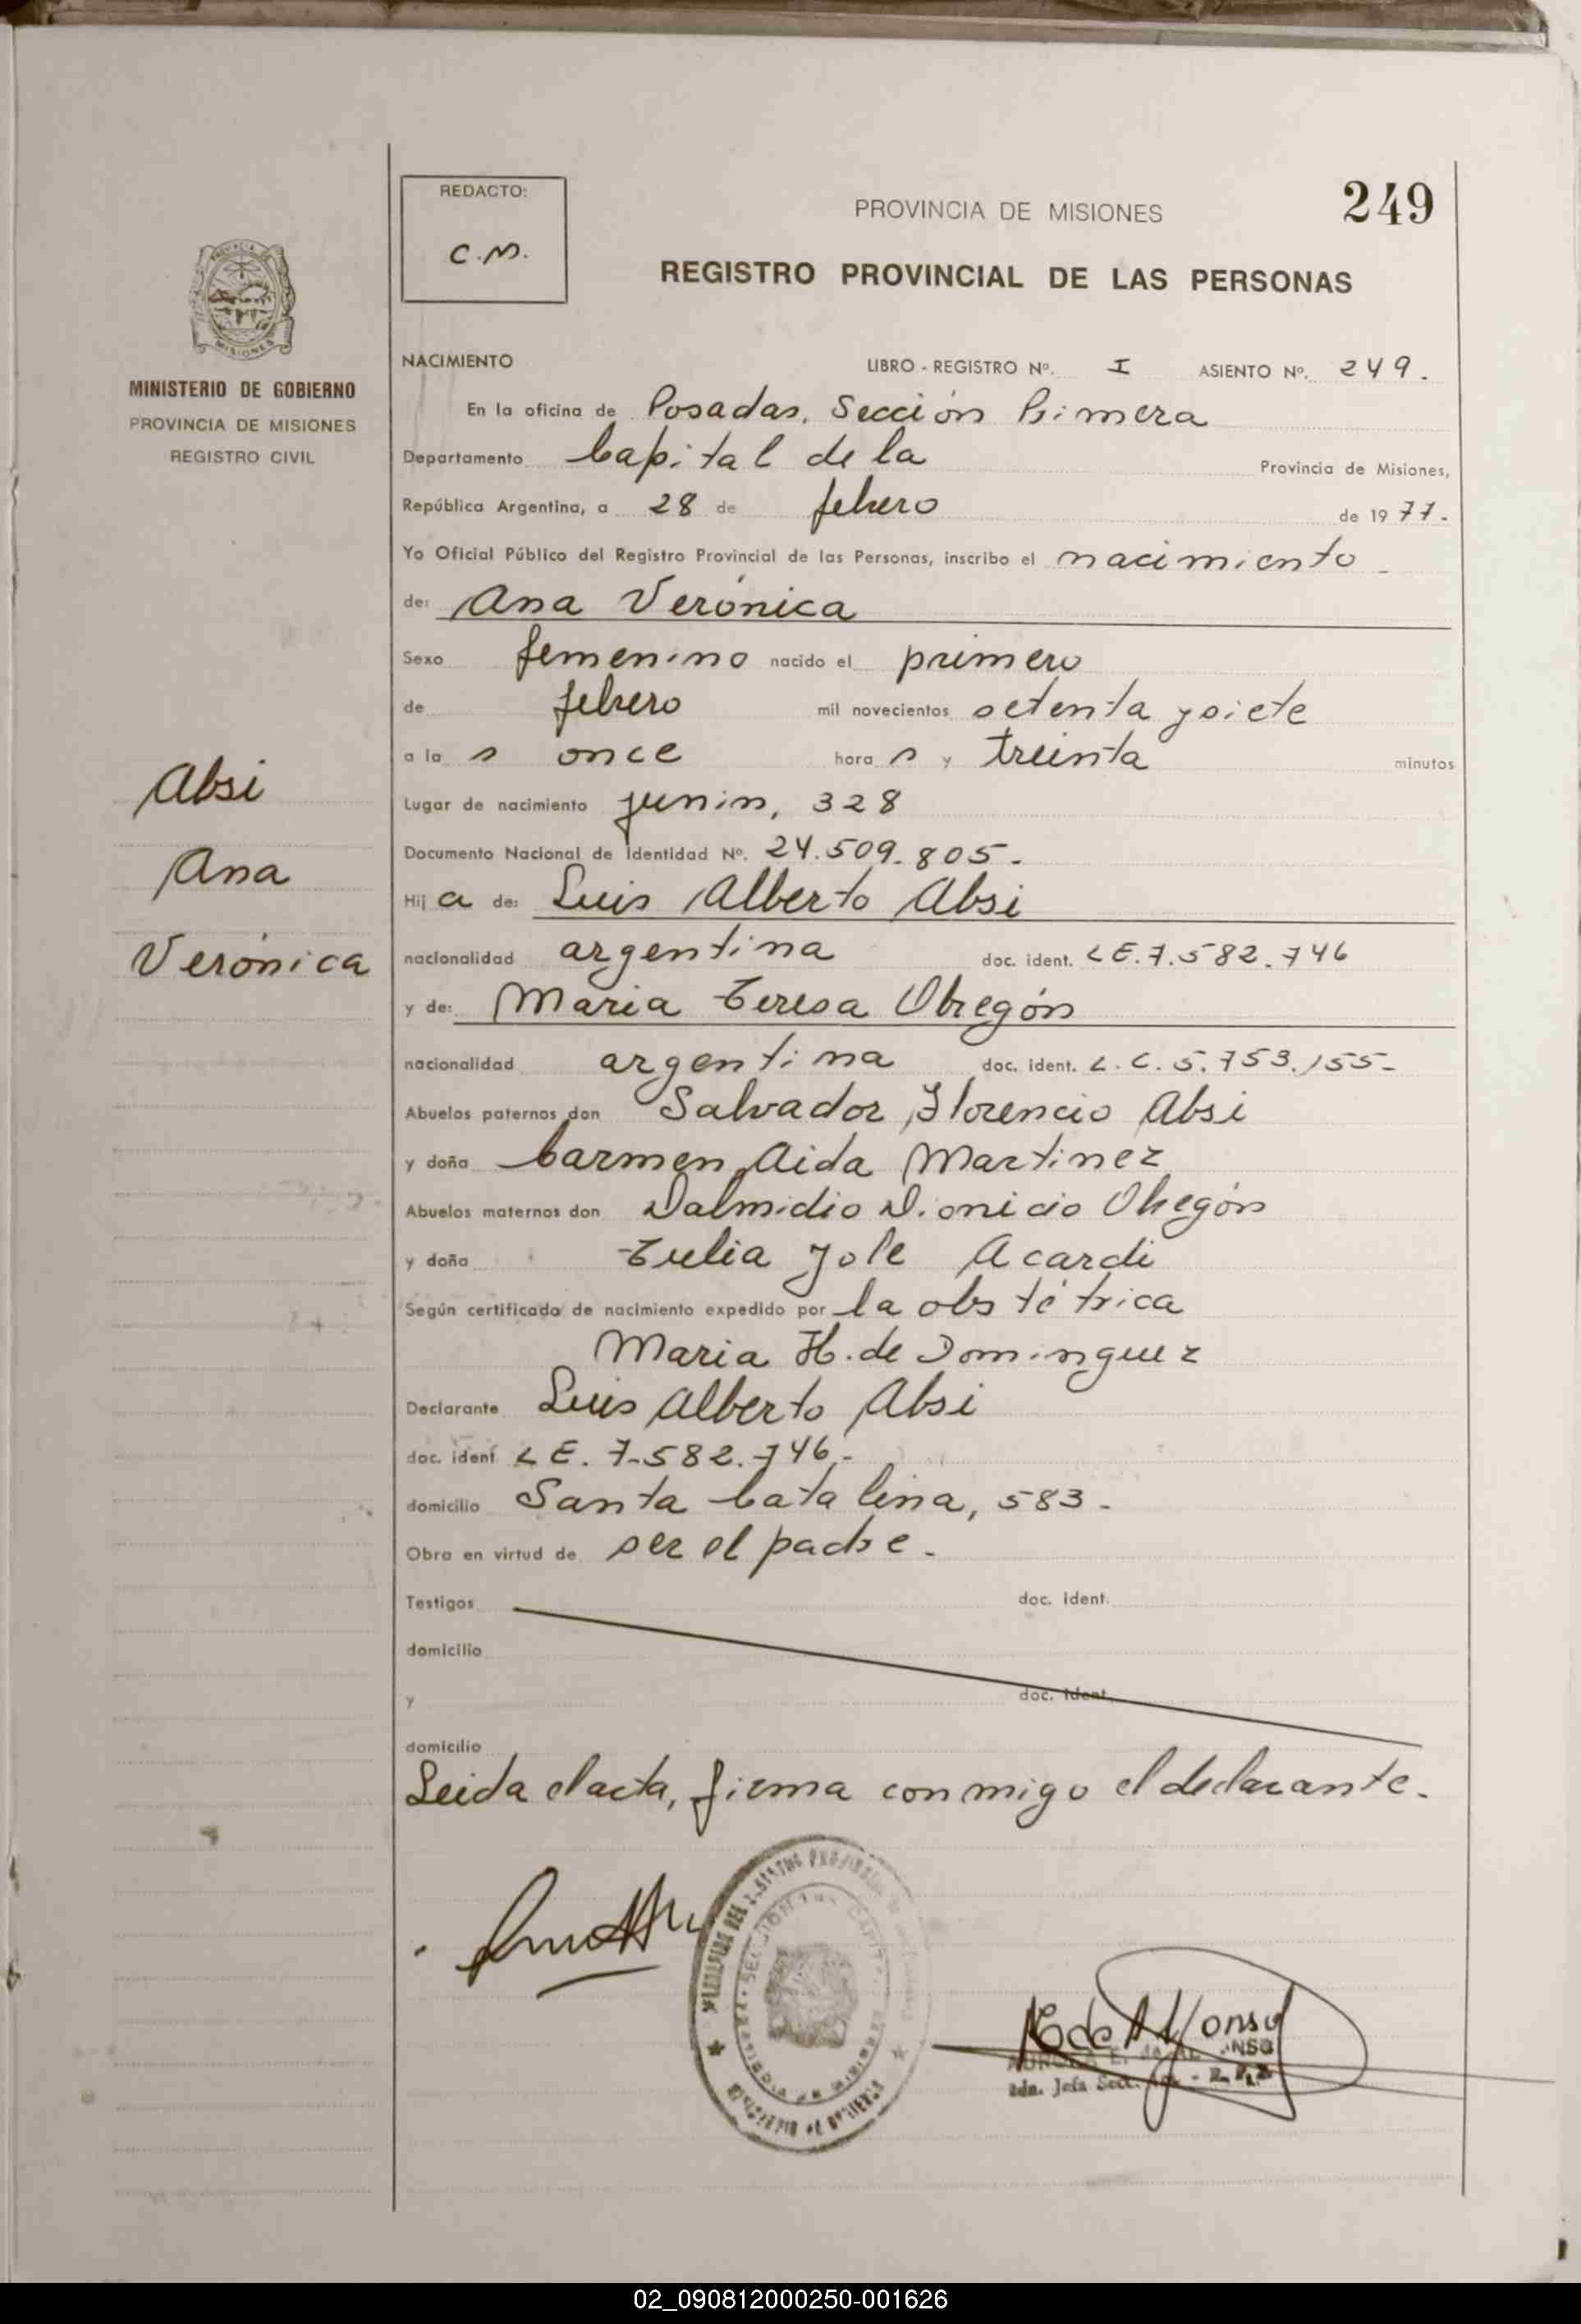 REDACTO:
C.M.
PROVINCIA DE MISIONES
249
REGISTRO PROVINCIAL DE LAS PERSONAS
MINISTERIO DE GOBIERNO
PROVINCIA DE MISIONES
REGISTRO CIVIL
NACIMIENTO LIBRO - REGISTRO Nº. I ASIENTO Nº. 249.
En la oficina de Posadas. Sección Primera
Departamento Capital de la Provincia de Misiones,
República Argentina, a 28 de febrero de 1977.
Yo Oficial Público del Registro Provincial de las Personas, inscribo el nacimiento
de: Ana Verónica
Sexo femenino nacido el primero
de febrero mil novecientos setenta y siete
a la s once hora s y treinta minutos
Lugar de nacimiento junin, 328
Documento Nacional de Identidad Nº. 24.509.805.
Hij a de: Luis Alberto Absi
nacionalidad argentina doc. ident. LE.7.582.746
y de: Maria Teresa Obregón
nacionalidad argentina doc. ident. L.C.5.753.155-
Abuelos paternos don Salvador Florencio Absi
y doña Carmen Aida Martinez
Abuelos maternos don Dalmidio Dionicio Obregón
y doña Tulia Jole Acardi
Según certificado de nacimiento expedido por la obstétrica
Maria H. de Dominguez
Declarante Luis Alberto Absi
doc. ident LE. 7-582.746.-
domicilio Santa Catalina, 583-
Obra en virtud de ser el padre.
Testigos doc. ident.
domicilio
y doc. ident.
domicilio
Leida el acta, firma conmigo el declarante.
Absi
Ana
Verónica
02_090812000250-001626